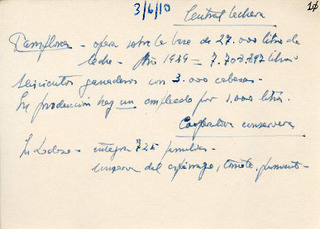 3/6/10
10
Central lechera
Pamplona - opera sobre la base de 27.000 litros de
leche - Año 1959 = 7.703.797 litros
Seiscientos ganaderos con 3.000 cabezas.
En producción hay un empleado por 1.000 litros.
Cooperativa conservera
En Lodosa - integra 725 familias -
conserva del espárrago, tomate, pimiento -